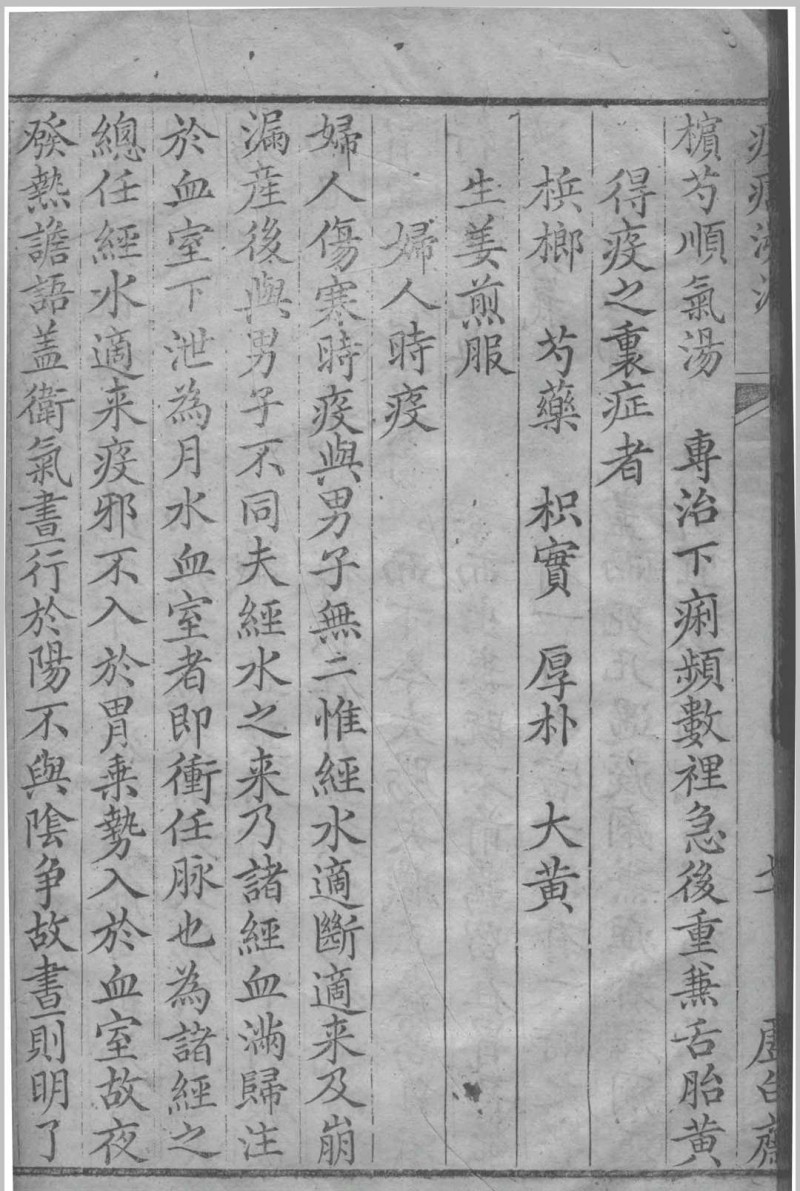 檳芍順氣湯　專治下痢頻數裡急後重兼舌胎黃
得疫之裏症者
梹榔　芍藥　枳實　厚朴　大黄
生姜煎服
婦人時疫
婦人傷寒時疫與男子無二惟經水適斷適来及崩
漏產後與男子不同夫經水之来乃諸經血滿歸注
於血室下泄為月水血室者即衝任脉也為諸經之
總任經水適来疫邪不入於胃乗勢入於血室故夜
發熱譫語盖衛氣晝行於陽不與陰争故晝則明了